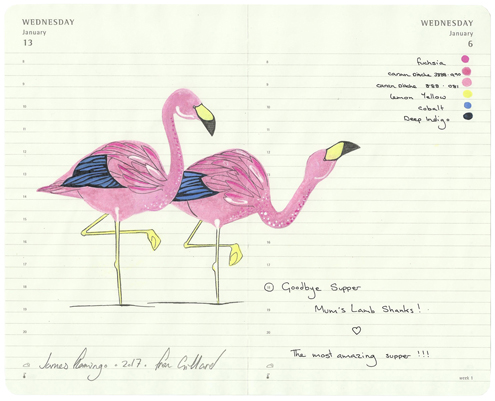 WEDNESDAY
January
13
WEDNESDAY
January
6
fuchsia
caran D'Ache 3888.090
caran D'Ache 3888.081
Lemon Yellow
cobalt
Deep Indigo
8
9
10
11
12
13
14
15
16
17
18
19
20
8
9
10
11
12
13
14
15
16
17
18
19
20
Goodbye Supper
Mum's Lamb Shanks!
♡
The most amazing supper !!!
James Flamingo . 2017.
6
6
week 1